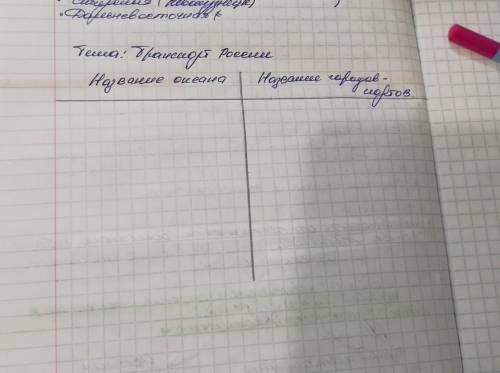 • Дальневосточная
Тема: Транспорт России
Название океана
Название городов-
портов